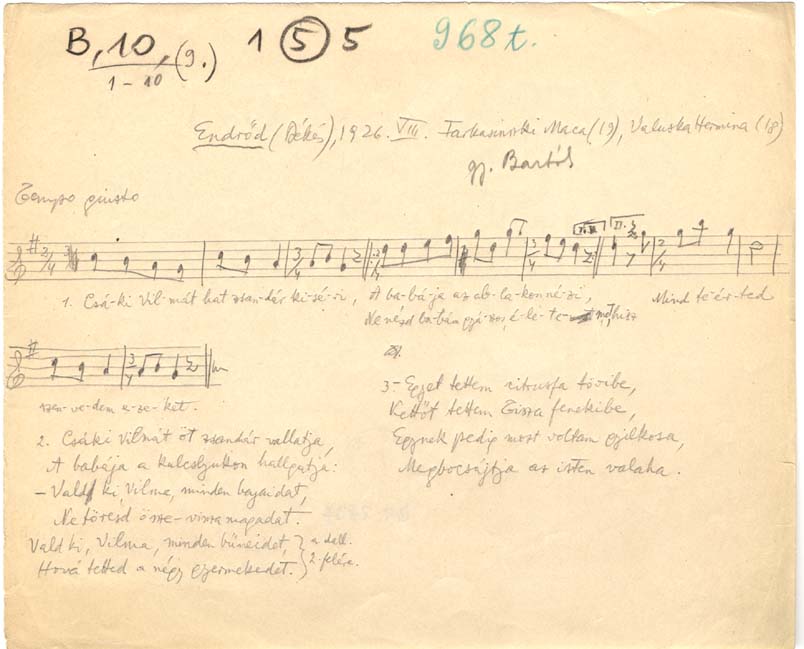 B, 10, (9.) 1 5 5 968t.
1-10
Endrőd (Békés), 1926. VIII. Farkasinszki Maca (19), Valuska Hermina (18)
gy. Bartók
Tempo giusto
1. Csá-ki Vil-mát hat zsan-dár ki-sé-ri, A ba-bá-ja az ab-la-kon né-zi, Mind te-ér-ted
Ne nézd ba-bám gyá-szos é-le-te-met, hisz
szen-ve-dem e-ze-ket.
2. Csáki Vilmát öt zsandár vallatja,
A babája a kulcslyukon hallgatja:
- Valld ki, Vilma, minden bajaidat,
Ne töresd össze-vissza magadat.
Vald ki, Vilma, minden bűneidet, } a dall.
Hová tetted a négy gyermekedet. } 2-felére.
3. Egyet tettem citrusfa tövibe,
Kettőt tettem Tisza fenekibe,
Egynek pedig most voltam gyilkosa,
Megbocsájtja az isten valaha.